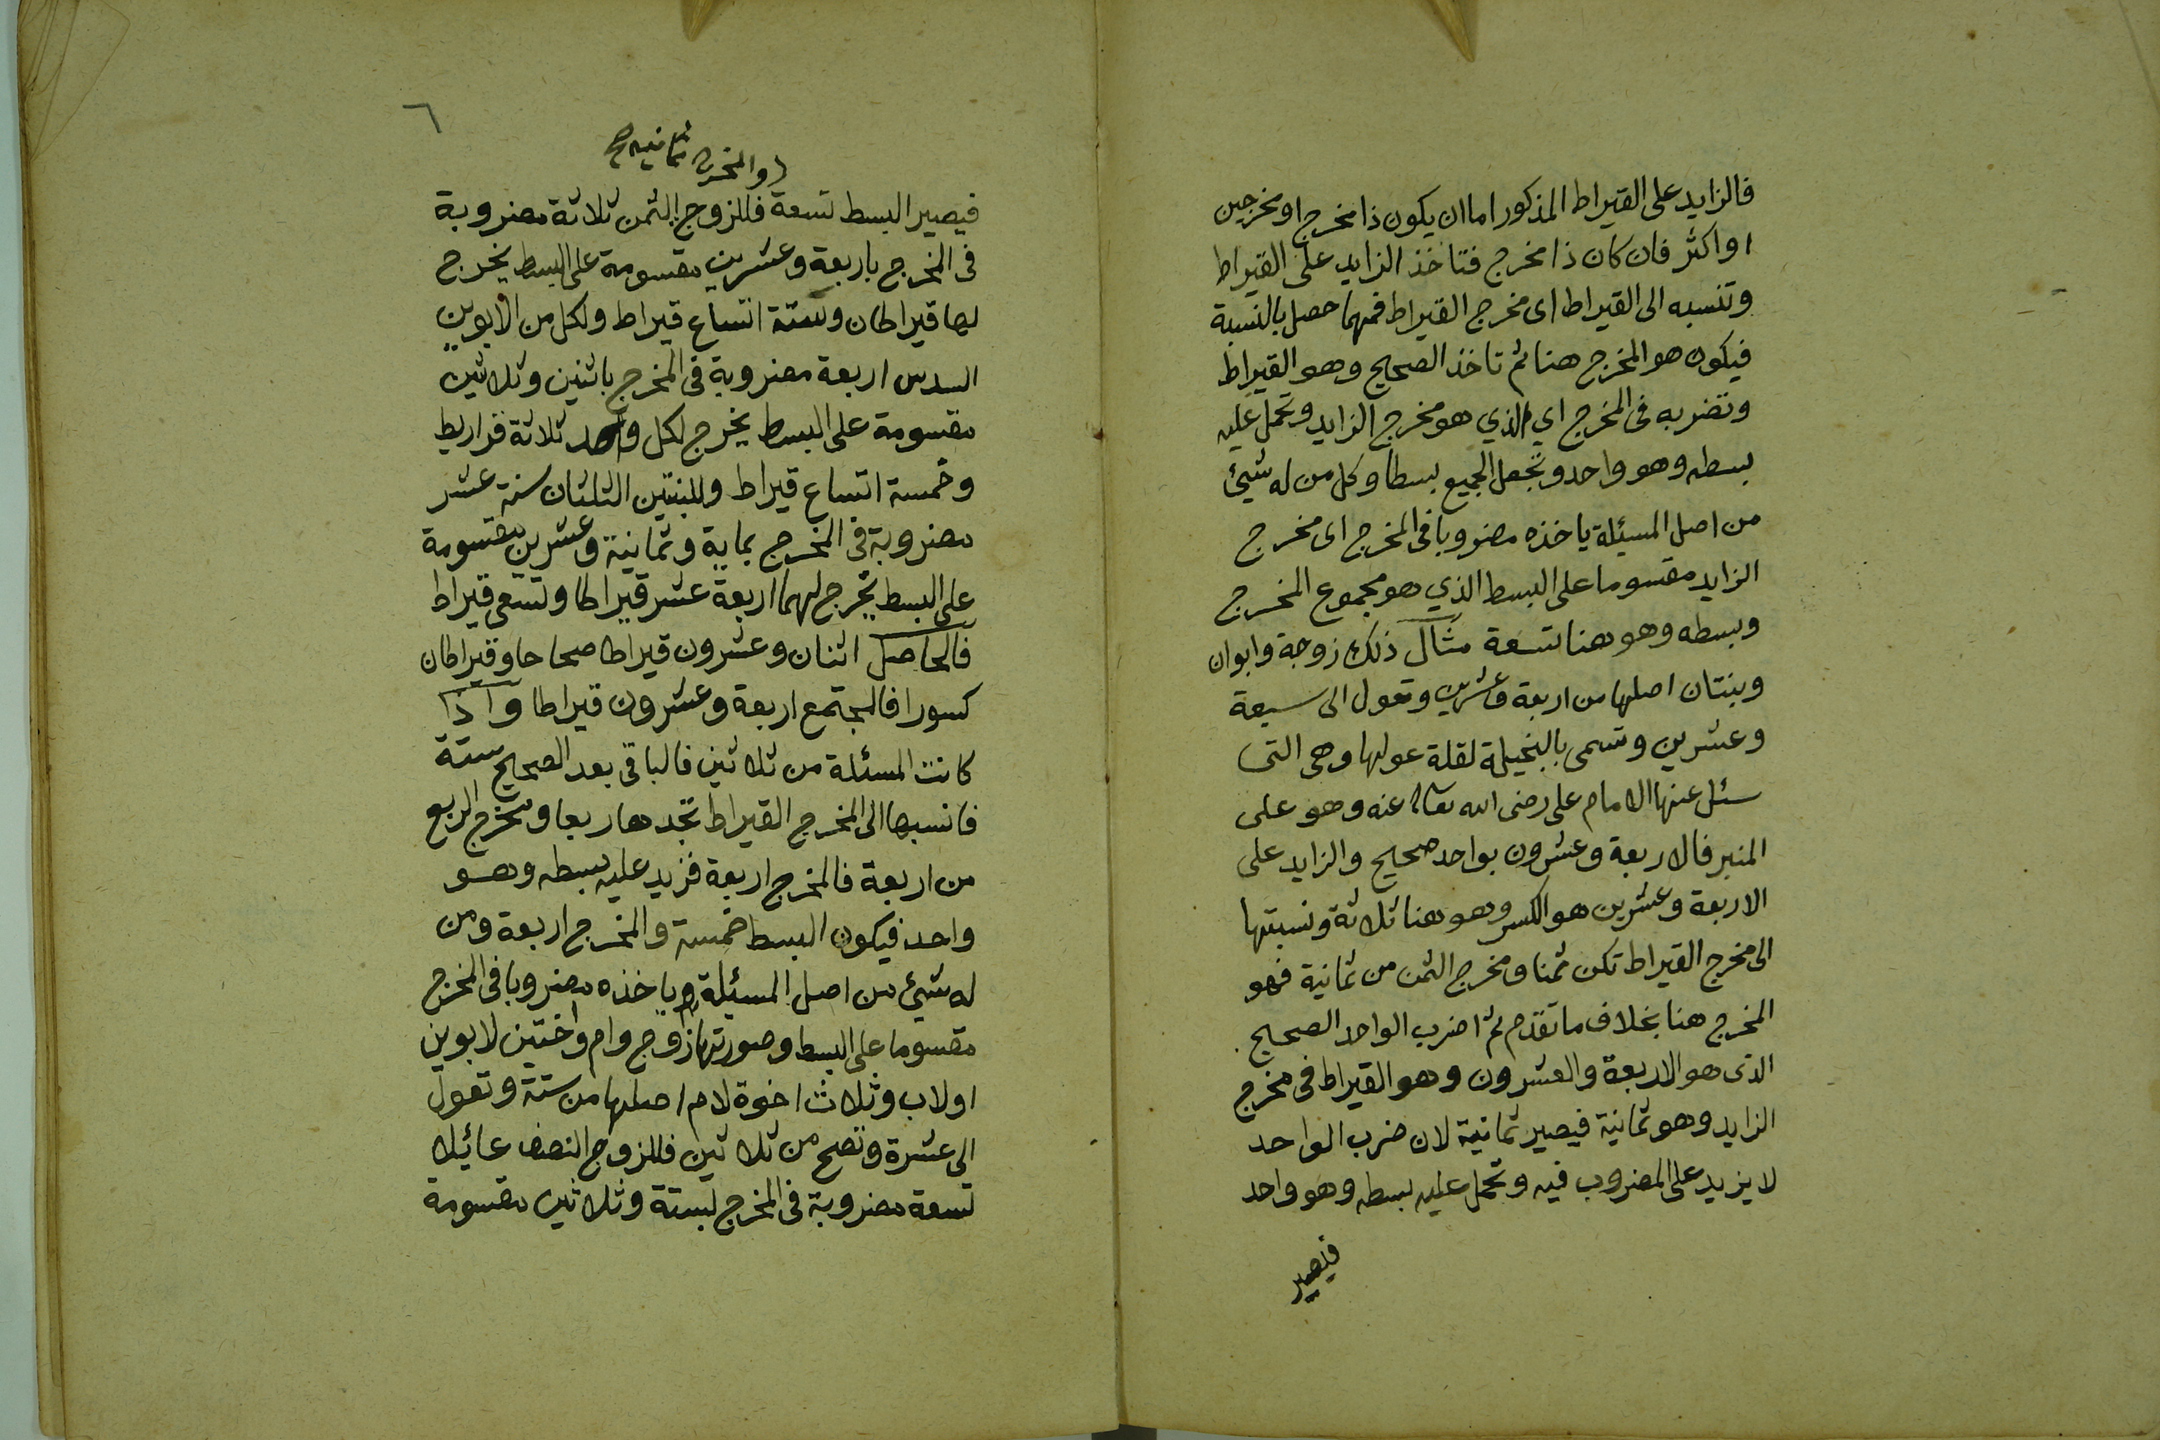 فالزايد على القيراط المذكور اما ان يكون ذا مخرج او مخرجين
او اكثر فان كان ذا مخرج فتاخذ الزايد على القيراط
وتنسبه الى القيراط اى مخرج القيراط فمهما حصل بالنسبة
فيكون هو المخرج هنا ثم تاخذ الصحيح وهو القيراط
وتضربه فى المخرج اي الذي هو مخرج الزايد وتحمل عليه
بسطه وهو واحد وتجعل الجميع بسطا وكل من له شيئ
من اصل المسئلة ياخذه مضروبا فى المخرج اى مخرج
الزايد مقسوما على البسط الذي هو مجموع المخرج
وبسطه وهو هنا تسعة مثال ذلك زوجة وابوان
وبنتان اصلها من اربعة وعشرين وتعول الى سبعة
وعشرين وتسمى بالبخيلة لقلة عولها وهى التى
سئل عنها الامام على رضى الله تعالى عنه وهو على
المنبر فالاربعة وعشرون بواحد صحيح والزايد على
الاربعة وعشرين هو الكسر وهو هنا ثلاثة ونسبتها
الى مخرج القيراط تكن ثمنا ومخرج الثمن من ثمانية فهو
المخرج هنا بخلاف ما تقدم ثم اضرب الواحد الصحيح
الذى هو الاربعة والعشرون وهو القيراط فى مخرج
الزايد وهو ثمانية فيصير ثمانية لان ضرب الواحد
لا يزيد على المضروب فيه وتحمل عليه بسطه وهو واحد
فيصير
٦
والمخرج ثمانيه صح
فيصير البسط تسعة فللزوج الثمن ثلاثة مضروبة
فى المخرج باربعة وعشرين مقسومة على البسط يخرج
لها قيراطان وستة اتساع قيراط ولكل من الابوين
السدس اربعة مضروبة فى المخرج باثنين وثلاثين
مقسومة على البسط يخرج لكل واحد ثلاثة قراريط
وخمسة اتساع قيراط وللبنتين الثلثان ستة عشر
مضروبة فى المخرج بماية وثمانية وعشرين مقسومة
على البسط يخرج لهما اربعة عشر قيراطا وتسعى قيراط
فالحاصل اثنان وعشرون قيراطا صحاحا وقيراطان
كسورا فالمجتمع اربعة وعشرون قيراطا واذا
كانت المسئلة من ثلاثين فالباقى بعد الصحيح ستة
فانسبها الى المخرج القيراط تجدها ربعا ومخرج الربع
من اربعة فالمخرج اربعة فزيد عليه بسطه وهو
واحد فيكون البسط خمسة والمخرج اربعة ومن
له شيئ من اصل المسئلة وياخذه مضروبا فى المخرج
مقسوما على البسط وصورتها زوج وام واختين لابوين
او لاب وثلاث اخوة لام اصلها من ستة وتعول
الى عشرة وتصح من ثلاثين فللزوج النصف عائلا
تسعة مضروبة فى المخرج بستة وثلاثين مقسومة